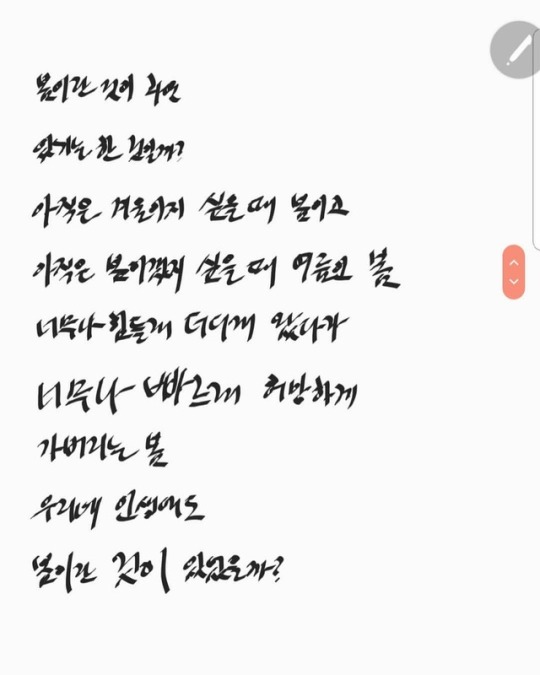 봄이란 것이 과연
있기는 한 것일까?
아직은 겨울이지 싶을 때 봄이고
아직은 봄이겠지 싶을 때 여름인 봄
너무나 힘들게 더디게 왔다가
너무나 빠르게 허망하게
가버리는 봄
우리네 인생에도
봄이란 것이 있었을까?